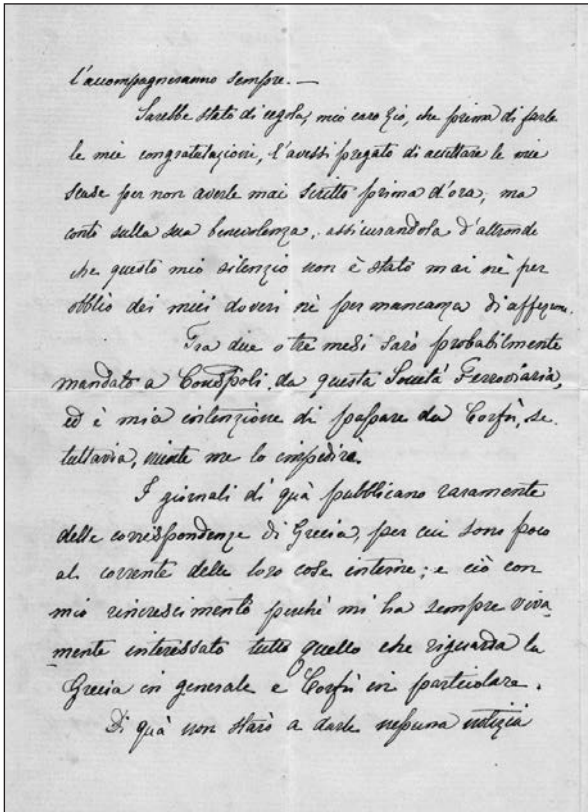 l'accompagneranno sempre. —
Sarebbe stato di regola, mio caro Zio, che prima di farle
le mie congratulazioni, l'avessi pregato di accettare le mie
scuse per non averle mai scritto prima d'ora; ma
conto sulla sua benevolenza, assicurandola d'altronde
che questo mio silenzio non è stato mai nè per
obblio dei miei doveri nè per mancanza di affezione.
Fra due o tre mesi sarò probabilmente
mandato a Cons̄poli, da questa Società Ferroviaria,
ed è mia intenzione di passare da Corfù, se
tuttavia, niente me lo impedirà.
I giornali di quà pubblicano raramente
delle corrispondenze di Grecia, per cui sono poco
al corrente delle loro cose interne; e ciò con
mio rincrescimento perchè mi ha sempre viva-
mente interessato tutto quello che riguarda la
Grecia in generale e Corfù in particolare.
Di quà non starò a darle nessuna notizia